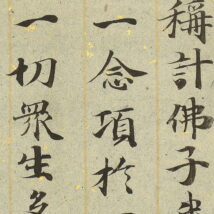 稱計佛子
一念項於
一切衆生